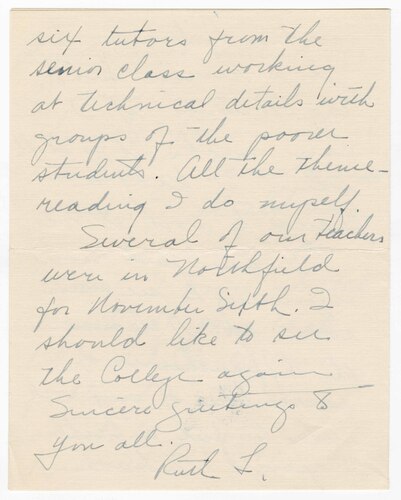 six tutors from the
senior class working
at technical details with
groups of the poorer
students. All the theme-
reading I do myself.
Several of our teachers
were in Northfield
for November Sixth. I
should like to see
the College again
Sincere greetings to
you all.
Ruth L.